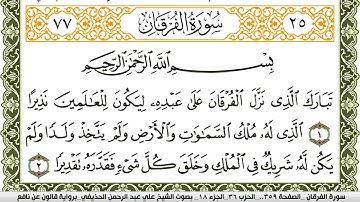 ٧٧ سُورَةُ الْفُرْقَانِ ٢٥
بِسْمِ اللَّهِ الرَّحْمَٰنِ الرَّحِيمِ
تَبَارَكَ الَّذِى نَزَّلَ الْفُرْقَانَ عَلَىٰ عَبْدِهِ لِيَكُونَ لِلْعَالَمِينَ نَذِيرًا
١ الَّذِى لَهُ مُلْكُ السَّمَاوَاتِ وَالْأَرْضِ وَلَمْ يَتَّخِذْ وَلَدًا وَلَمْ
يَكُن لَّهُ شَرِيكٌ فِى الْمُلْكِ وَخَلَقَ كُلَّ شَىْءٍ فَقَدَّرَهُ تَقْدِيرًا ٢
سورة الفرقان .. الصفحة ٣٥٩.. الحزب ٣٦ .. الجزء ١٨ .. بصوت الشيخ علي عبد الرحمن الحذيفي.. برواية قالون عن نافع